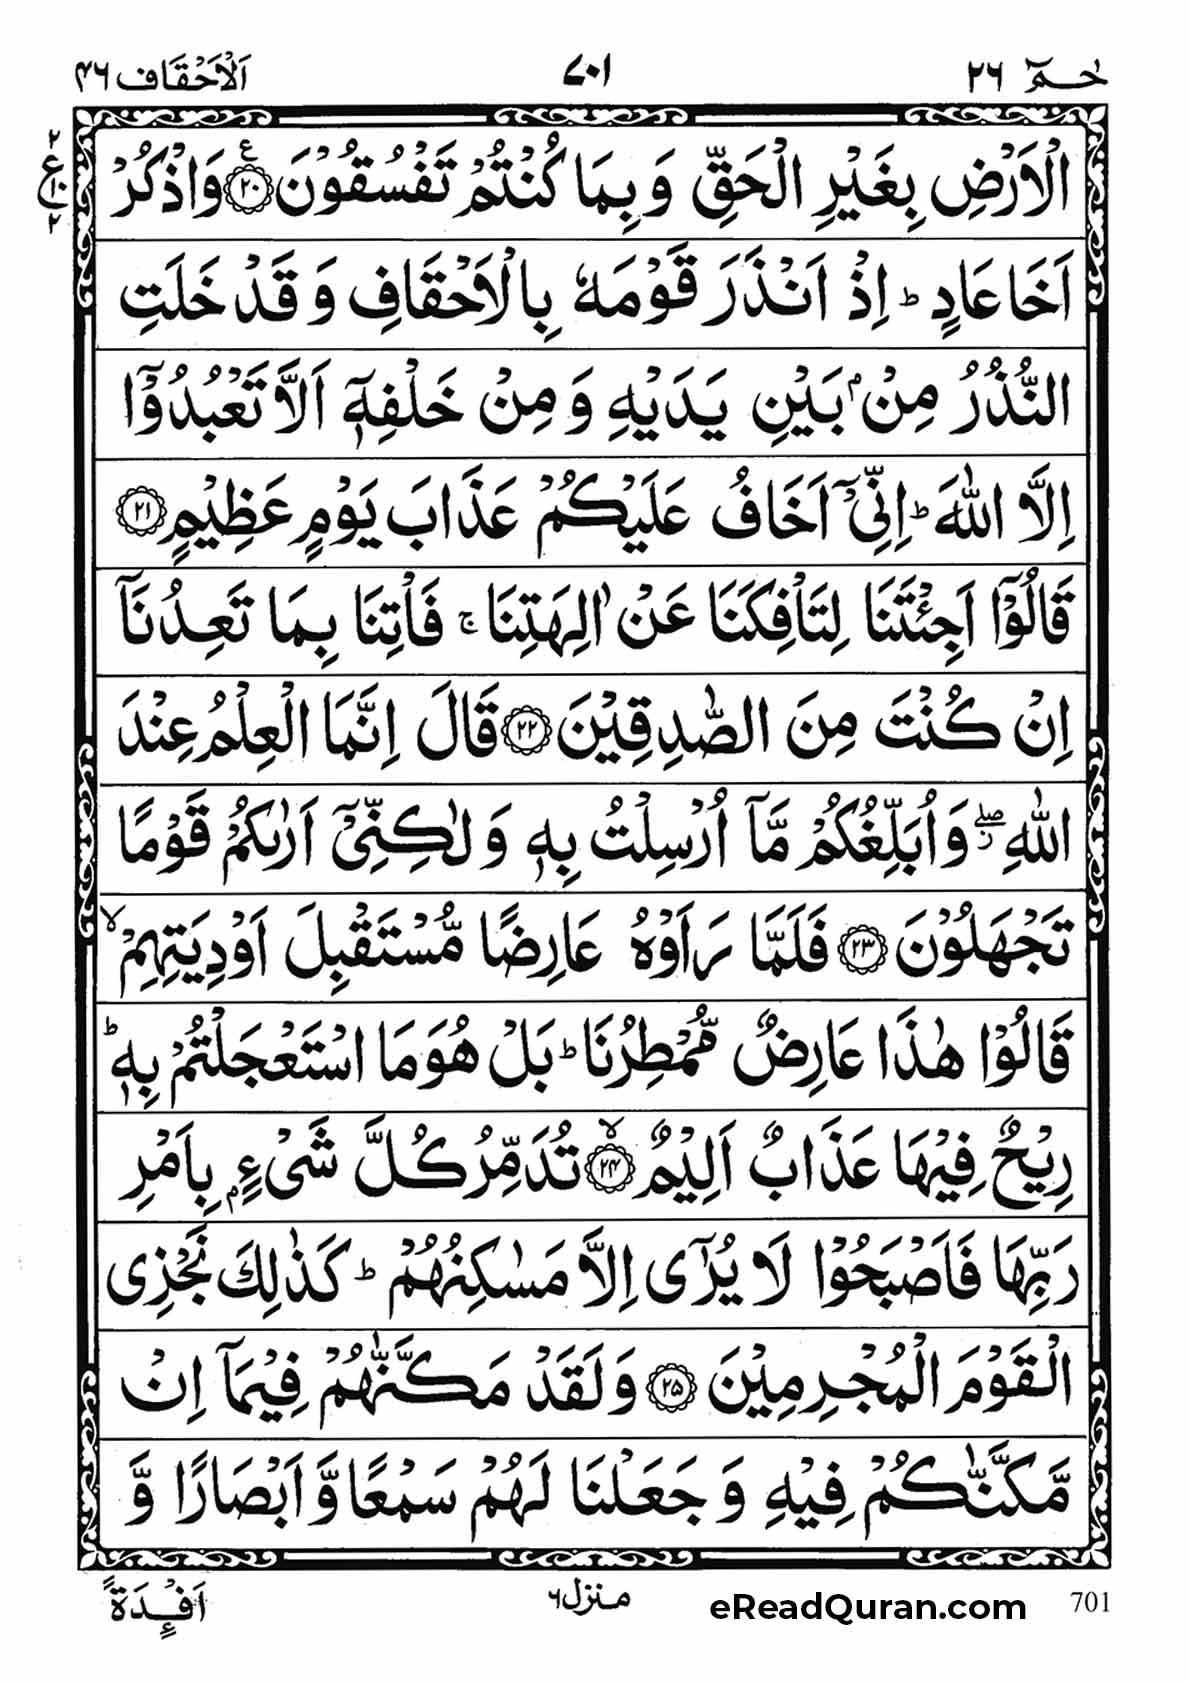 حٰمٓ ٢٦ ٧٠١ اَلْاَحْقَاف ٤٦
الْاَرْضِ بِغَيْرِ الْحَقِّ وَ بِمَا كُنْتُمْ تَفْسُقُوْنَ ۧ﴿٢٠﴾ وَاذْكُرْ
اَخَا عَادٍ ؕ اِذْ اَنْذَرَ قَوْمَهٗ بِالْاَحْقَافِ وَ قَدْ خَلَتِ
النُّذُرُ مِنْۢ بَيْنِ يَدَيْهِ وَ مِنْ خَلْفِهٖۤ اَلَّا تَعْبُدُوْۤا
اِلَّا اللّٰهَ ؕ اِنِّيْۤ اَخَافُ عَلَيْكُمْ عَذَابَ يَوْمٍ عَظِيْمٍ ﴿٢١﴾
قَالُوْۤا اَجِئْتَنَا لِتَاْفِكَنَا عَنْ اٰلِهَتِنَا ۚ فَاْتِنَا بِمَا تَعِدُنَاۤ
اِنْ كُنْتَ مِنَ الصّٰدِقِيْنَ ﴿٢٢﴾ قَالَ اِنَّمَا الْعِلْمُ عِنْدَ
اللّٰهِ ۖؗ وَ اُبَلِّغُكُمْ مَّاۤ اُرْسِلْتُ بِهٖ وَ لٰكِنِّيْۤ اَرٰىكُمْ قَوْمًا
تَجْهَلُوْنَ ﴿٢٣﴾ فَلَمَّا رَاَوْهُ عَارِضًا مُّسْتَقْبِلَ اَوْدِيَتِهِمْ ۙ
قَالُوْا هٰذَا عَارِضٌ مُّمْطِرُنَا ؕ بَلْ هُوَ مَا اسْتَعْجَلْتُمْ بِهٖ ؕ
رِيْحٌ فِيْهَا عَذَابٌ اَلِيْمٌ ۙ﴿٢٤﴾ تُدَمِّرُ كُلَّ شَيْءٍۭ بِاَمْرِ
رَبِّهَا فَاَصْبَحُوْا لَا يُرٰۤى اِلَّا مَسٰكِنُهُمْ ؕ كَذٰلِكَ نَجْزِي
الْقَوْمَ الْمُجْرِمِيْنَ ﴿٢٥﴾ وَ لَقَدْ مَكَّنّٰهُمْ فِيْمَاۤ اِنْ
مَّكَّنّٰكُمْ فِيْهِ وَ جَعَلْنَا لَهُمْ سَمْعًا وَّ اَبْصَارًا وَّ
اَفْـِٕدَةً منزل ٦ eReadQuran.com 701
٢ ع ١٠ ٢